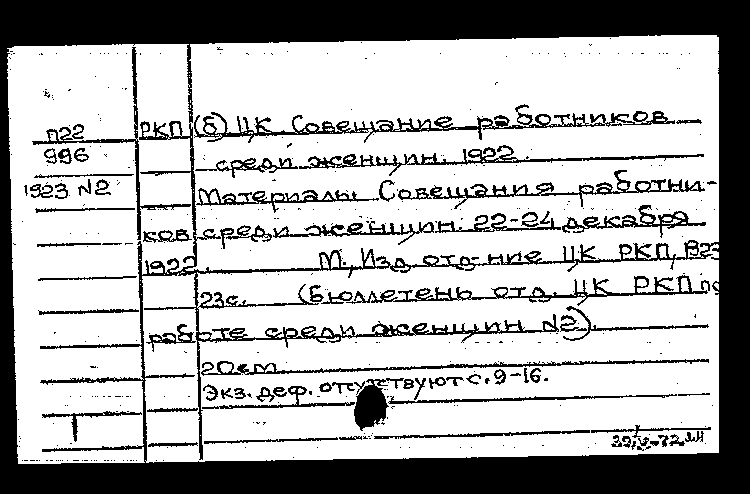 п22 РКП(б) ЦК Совещание работников
996 среди женщин. 1922.
1923 N2 Материалы Совещания работни-
ков среди женщин. 22-24 декабря
1922. М., Изд. отд-ние ЦК РКП, 1923
23с. (Бюллетень отд. ЦК РКП по
работе среди женщин N2).
20см.
Экз. деф. отсутствуют с. 9-16.